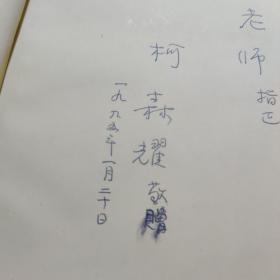 老师指正
柯森耀敬赠
一九九五年一月二十日